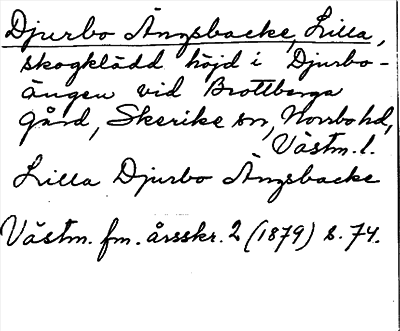 Djurbo Ängsbacke, Lilla,
skogklädd höjd i Djurbo-
ängen vid Brottberga
gård, Skerike sn, Norrbo hd,
Västm. l.
Lilla Djurbo Ängsbacke
Västm. fm. årsskr. 2 (1879) s. 74.